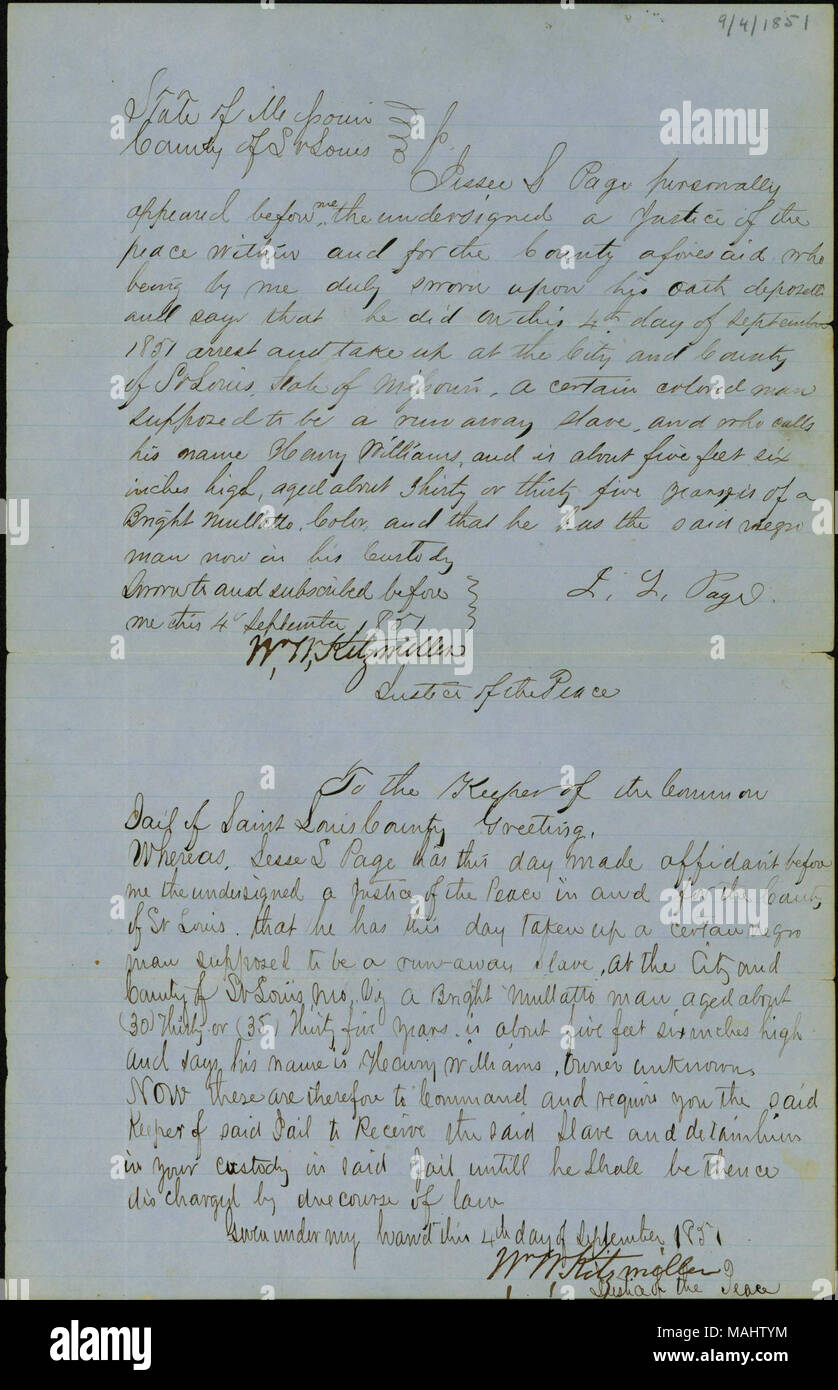 9/4/1851
State of Missouri
County of St Louis
Jessee S Page personally
appeared before me the undersigned a Justice of the
peace within and for the County aforesaid who
being by me duly sworn upon his oath deposeth
and says that he did on this 4th day of September
1851 arrest and take up at the City and County
of St Louis, State of Missouri, a certain colored man
supposed to be a run away slave, and who calls
his name Henry Williams, and is about five feet six
inches high, aged about thirty or thirty five years, is of a
Bright Mullatto Color, and that he has the said negro
man now in his Custody
Sworn to and subscribed before
J. S. Page
me this 4 September 1851
Wm W. Kitzmiller
Justice of the Peace
To the Keeper of the Common
Jail of Saint Louis County Greeting,
Whereas, Jesse S Page has this day made affidavit before
me the undersigned a Justice of the Peace in and for the County
of St Louis. that he has this day taken up a certain negro
man supposed to be a run-away slave, at the City and
County of St Louis, Mo, Viz a Bright Mullatto man aged about
(30) Thirty or (35) Thirty five years. is about five feet six inches high
and says his name is Henry Williams, Owner unknown,
Now these are therefore to Command and require you the said
Keeper of said Jail to Receive the said Slave and detain him
in your custody in said Jail untill he shall be thence
discharged by due course of law
Given under my hand this 4th day of September 1851
Wm W. Kitzmiller
Justice of the Peace
alamy
Image ID: MAHTYM
www.alamy.com